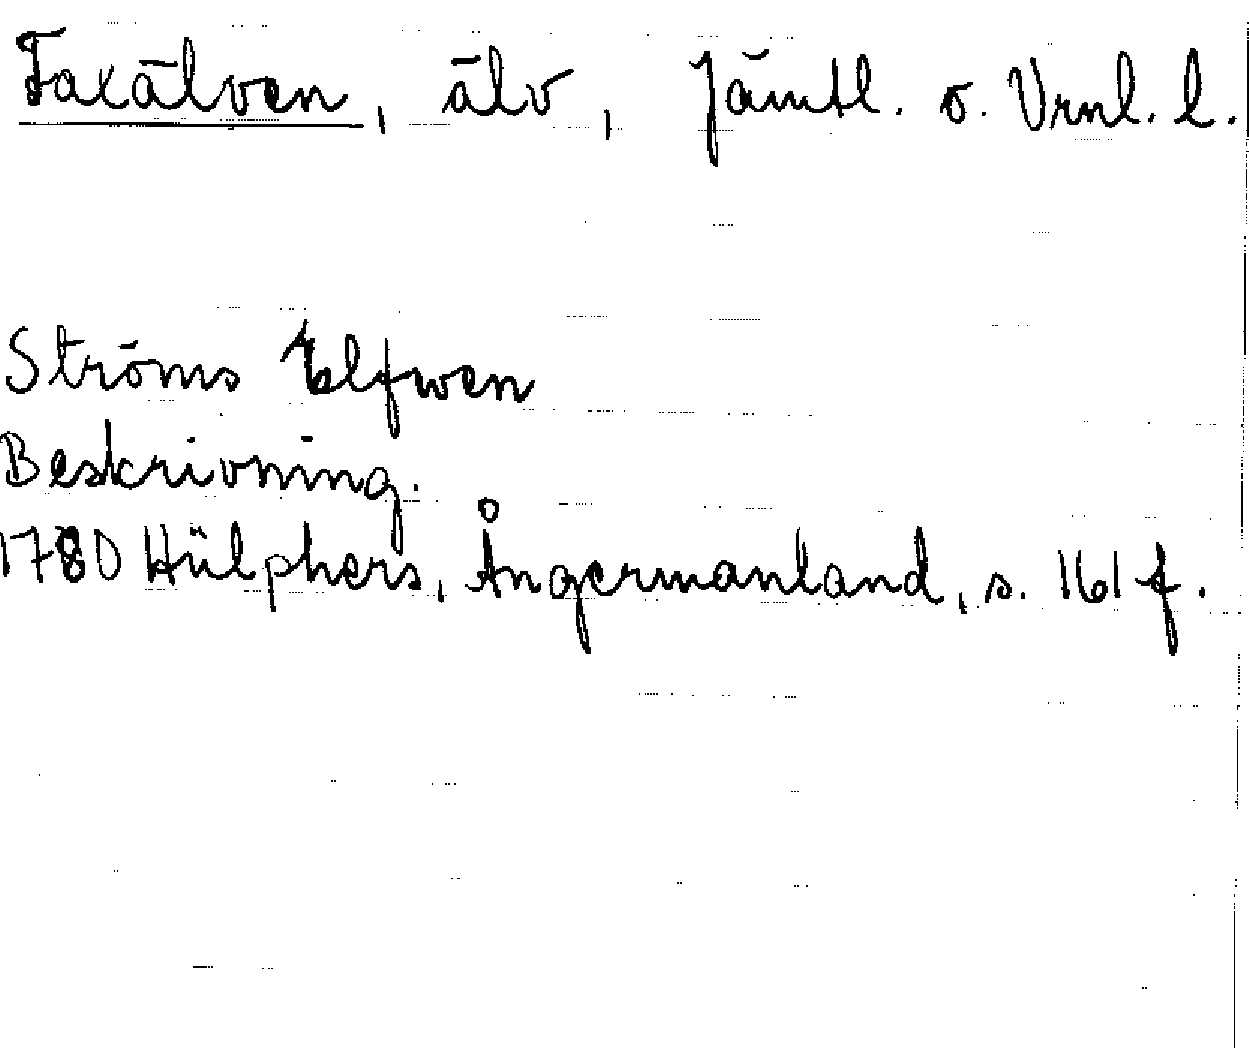 Faxälven, älv, Jämtl. o. Vrnl. l.
Ströms Elfwen
Beskrivning.
1780 Hülphers, Ångermanland, s. 161 f.